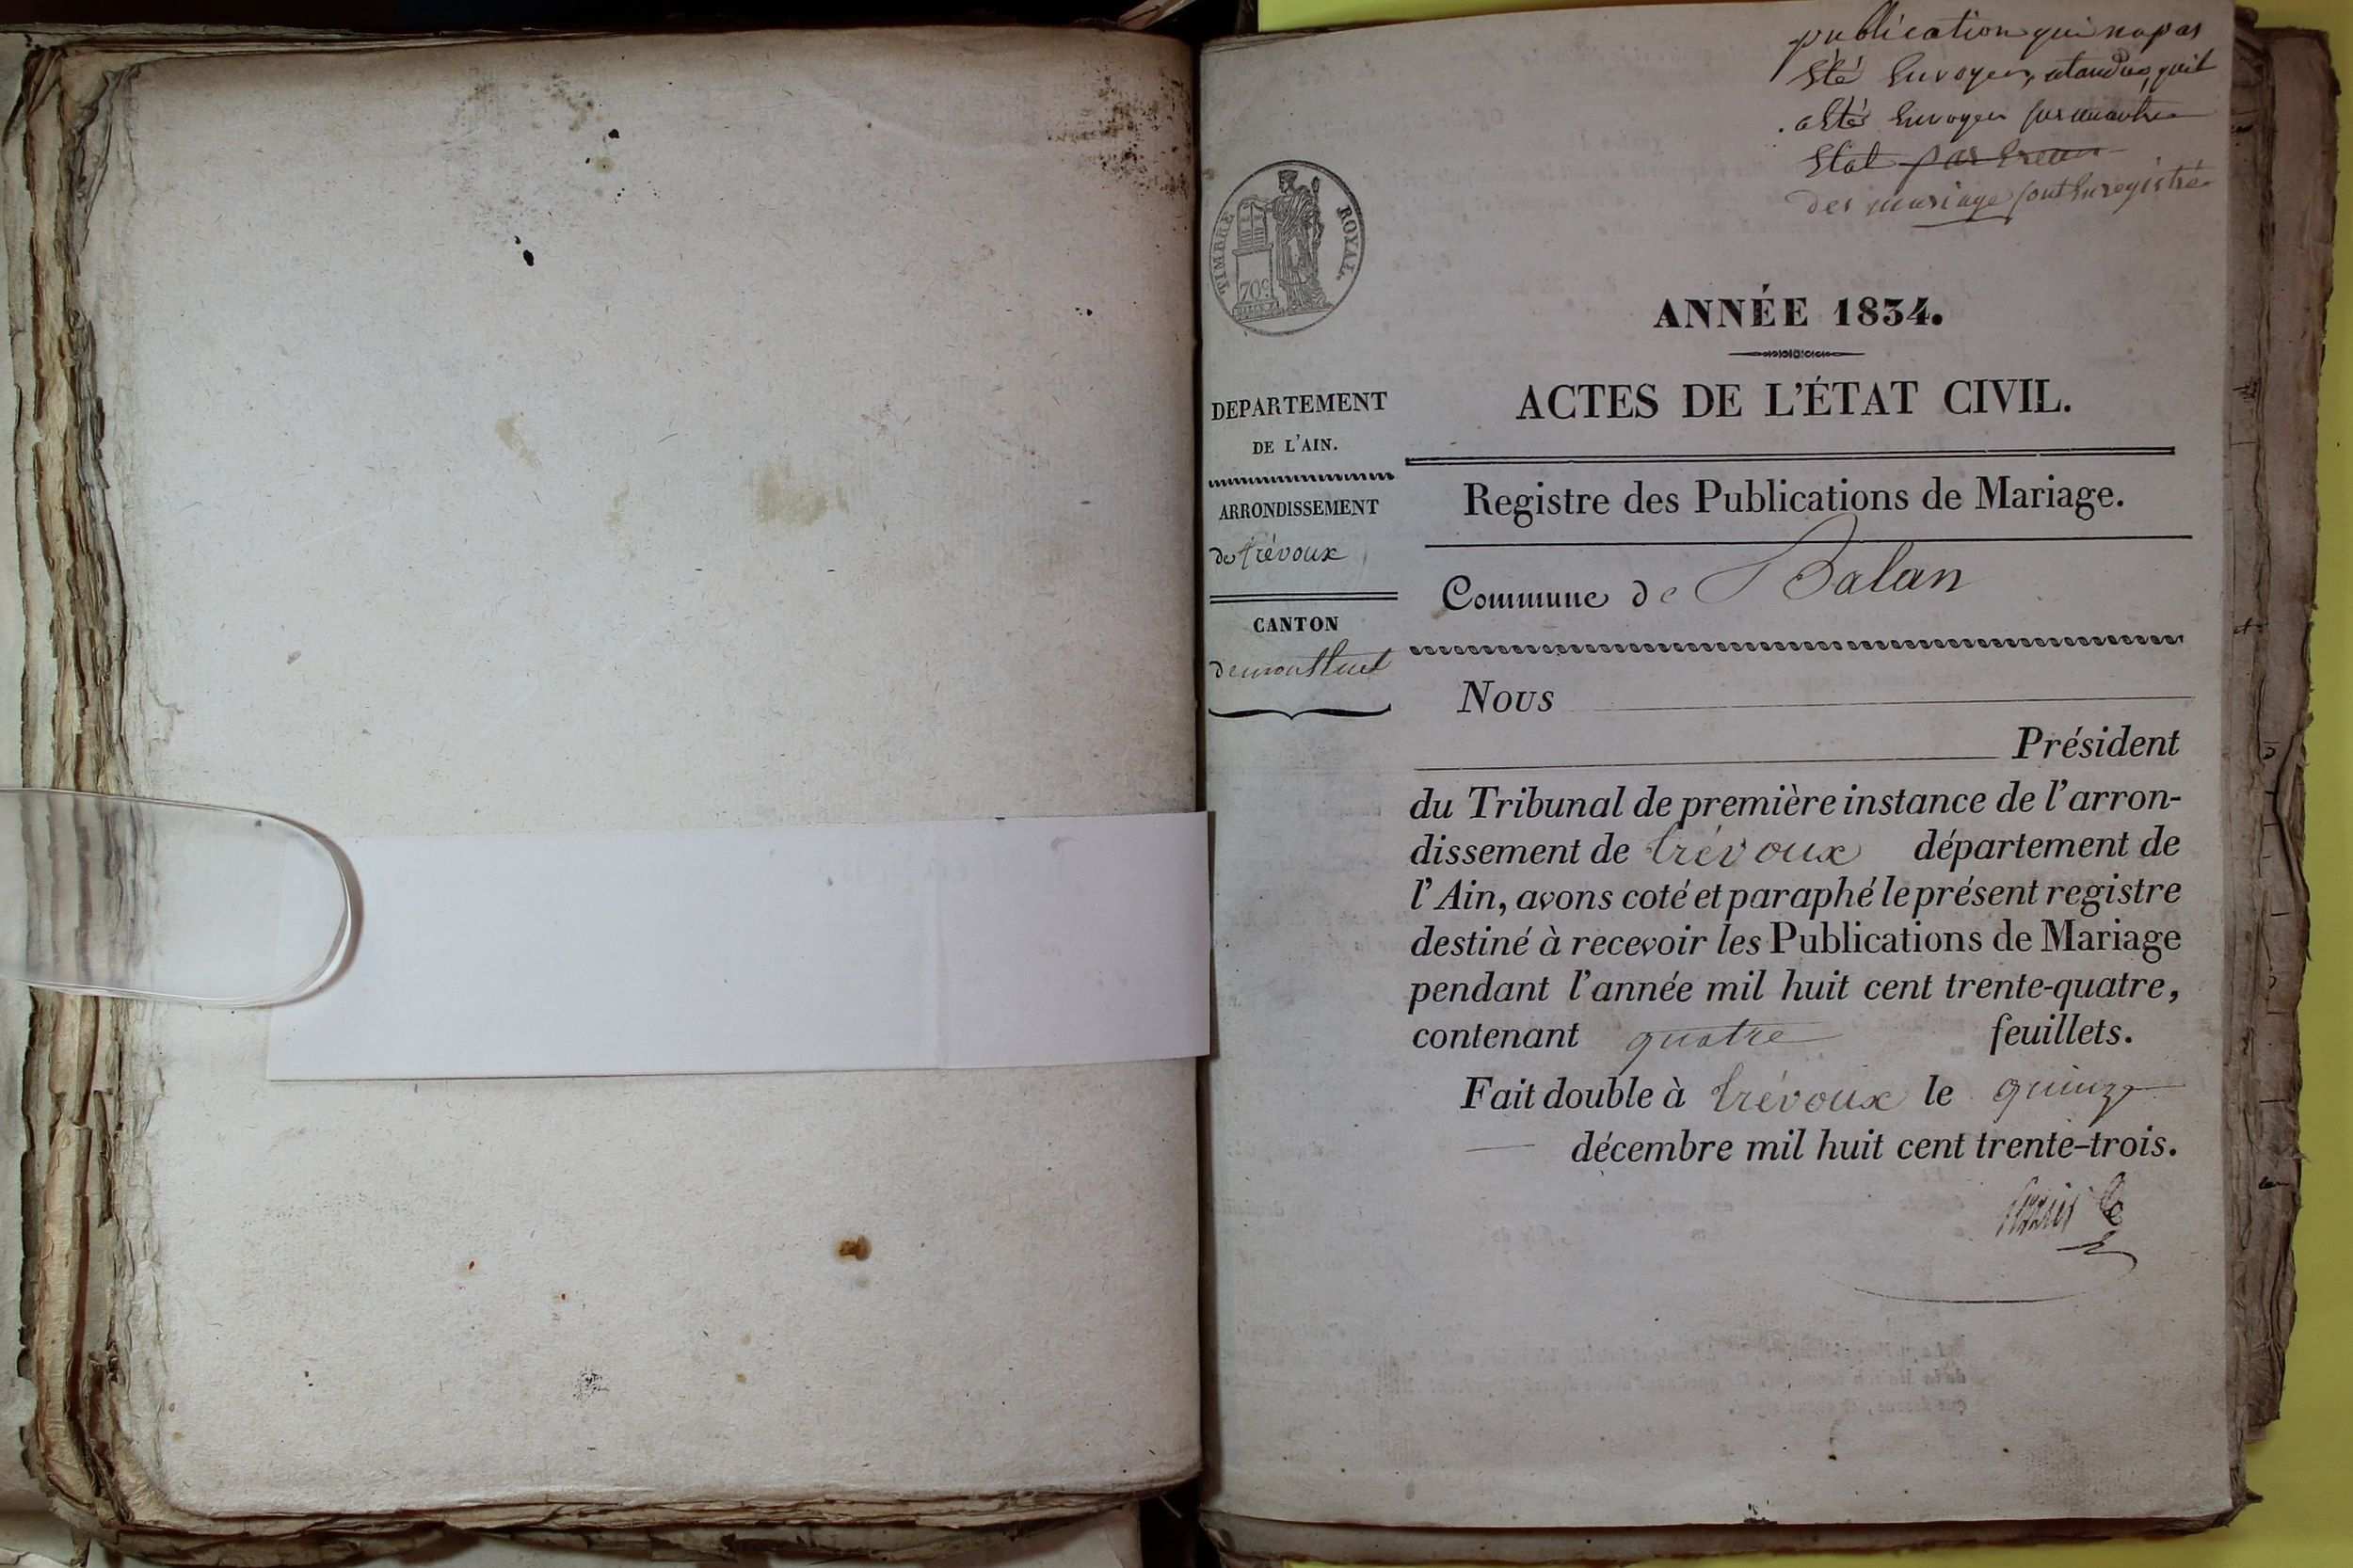 publication qui na pas
été Envoyer, atandue, quil
a été Envoyer sur un autre
Etat par Erreur
des mariage sont Enregistré
TIMBRE ROYAL.
70c
ANNÉE 1834.
ACTES DE L'ÉTAT CIVIL.
DEPARTEMENT
DE L'AIN.
ARRONDISSEMENT
de trévoux
CANTON
de montluel
Registre des Publications de Mariage.
Commune de Balan
Nous
Président
du Tribunal de première instance de l'arron-
dissement de trévoux département de
l'Ain, avons coté et paraphé le présent registre
destiné à recevoir les Publications de Mariage
pendant l'année mil huit cent trente-quatre,
contenant quatre feuillets.
Fait double à trévoux le quinze
décembre mil huit cent trente-trois.